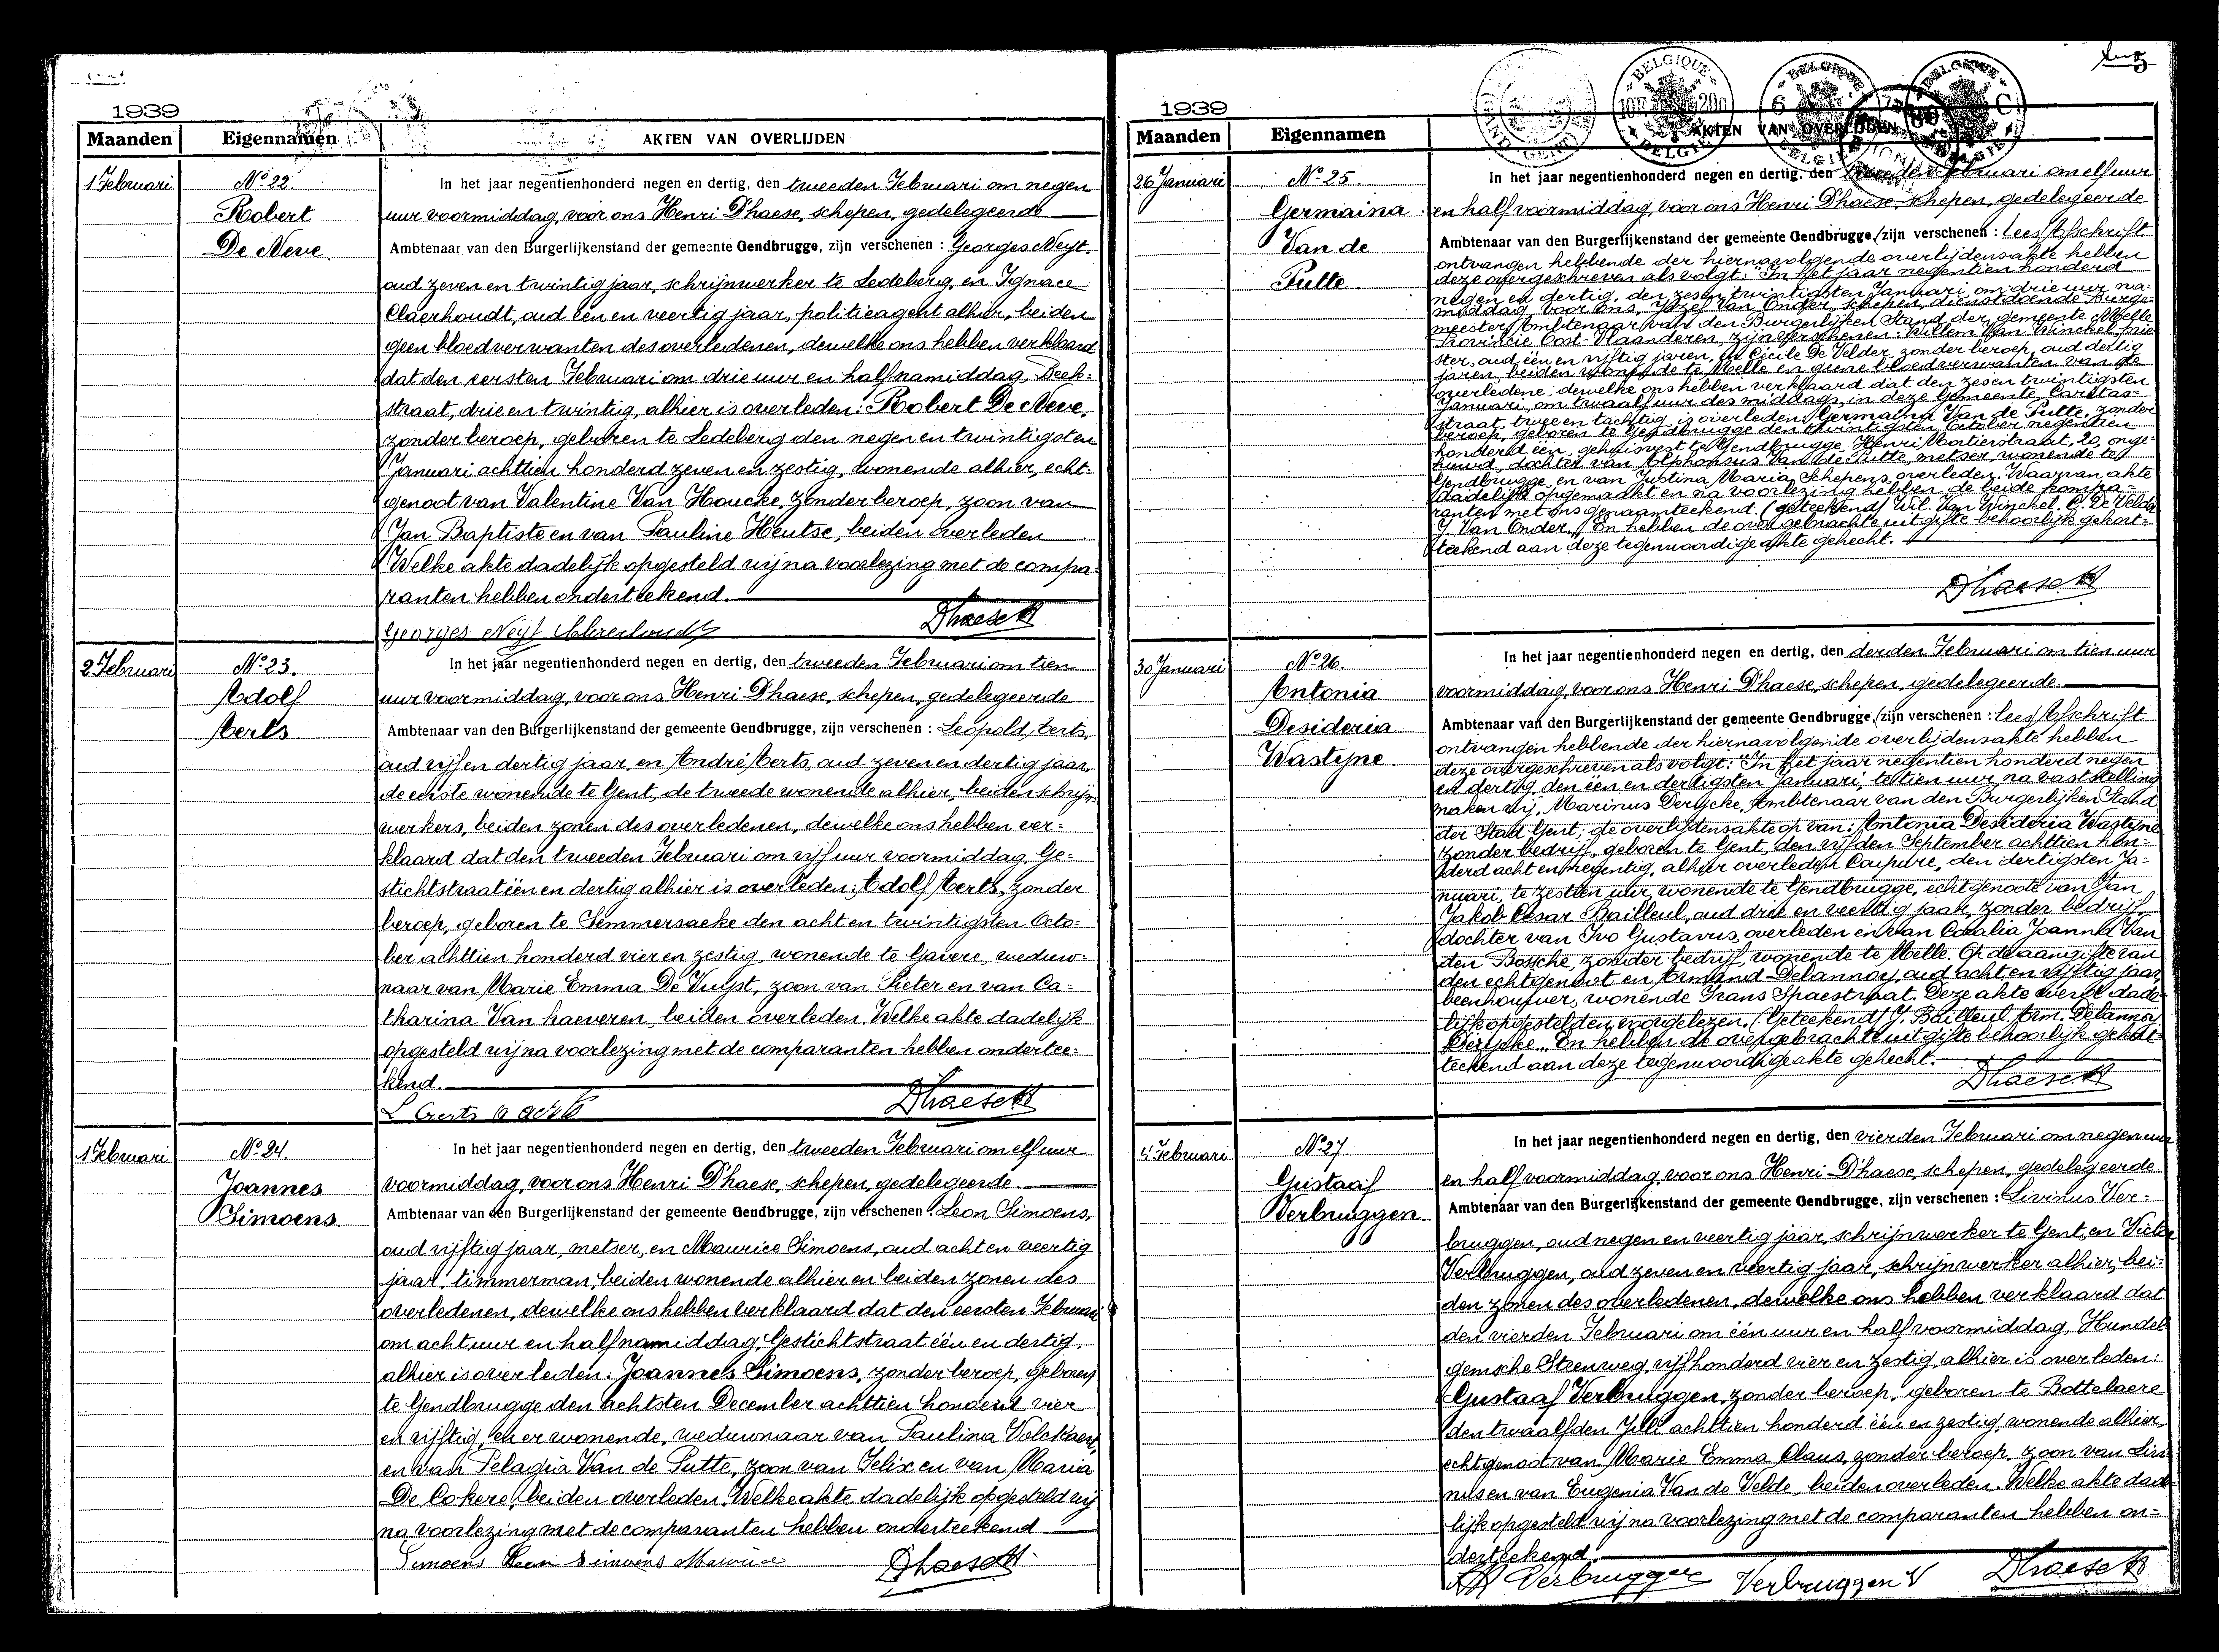 1939
Maanden
Eigennamen
AKTEN VAN OVERLIJDEN
1 Februari
Nº 22.
Robert
De Neve.
In het jaar negentienhonderd negen en dertig, den tweeden Februari om negen
uur voormiddag, voor ons Henri D'haese, schepen, gedelegeerde
Ambtenaar van den Burgerlijkenstand der gemeente Gendbrugge, zijn verschenen : Georges Neyt,
oud zeven en twintig jaar, schrijnwerker te Ledeberg, en Ignace
Claerhoudt, oud één en veertig jaar, politieagent alhier, beiden
geen bloedverwanten des overledenen, dewelke ons hebben verklaard
dat den eersten Februari om drie uur en half namiddag, Beek=
straat, drie en twintig, alhier is overleden: Robert De Neve,
zonder beroep, geboren te Ledeberg den negen en twintigsten
Januari achttien honderd zeven en zestig, wonende alhier, echt-
genoot van Valentine Van Houcke, zonder beroep, zoon van
Jan Baptiste en van Pauline Heutse, beiden overleden
Welke akte dadelijk opgesteld wij na voorlezing met de compa-
ranten hebben onderteekend.
Georges Neyt
D'haeseH
2 Februari
Nº 23.
Adolf
Aerts
In het jaar negentienhonderd negen en dertig, den tweeden Februari om tien
uur voormiddag, voor ons Henri D'haese, schepen, gedelegeerde
Ambtenaar van den Burgerlijkenstand der gemeente Gendbrugge, zijn verschenen : Leopold Aerts,
oud vijf en dertig jaar, en André Aerts, oud zeven en dertig jaar,
de eerste wonende te Gent, de tweede wonende alhier, beiden schrijn-
werkers, beiden zonen des overledenen, dewelke ons hebben ver=
klaard dat den tweeden Februari om vijf uur voormiddag, Ge=
stichtstraat één en dertig alhier is overleden: Adolf Aerts, zonder
beroep, geboren te Semmersaeke den acht en twintigsten Octo-
ber achttien honderd vier en zestig, wonende te Gavere, weduw-
naar van Marie Emma De Vuyst, zoon van Pieter en van Ca=
tharina Van haeveren, beiden overleden. Welke akte dadelijk
opgesteld wij na voorlezing met de comparanten hebben ondertee=
kend.
L Aerts A Aerts
D'haeseH
1 Februari
Nº 24.
Joannes
Simoens.
In het jaar negentienhonderd negen en dertig, den tweeden Februari om elf uur
voormiddag, voor ons Henri D'haese, schepen, gedelegeerde
Ambtenaar van den Burgerlijkenstand der gemeente Gendbrugge, zijn verschenen : Leon Simoens,
oud vijftig jaar, metser, en Maurice Simoens, oud acht en veertig
jaar, timmerman, beiden wonende alhier en beiden zonen des
overledenen, dewelke ons hebben verklaard dat den eersten Februari
om acht uur en half namiddag, Gestichtstraat één en dertig,
alhier is overleden: Joannes Simoens, zonder beroep, geboren
te Gendbrugge den achtsten December achttien honderd vier
en vijftig, en er wonende, weduwnaar van Paulina Volckaert,
en van Pelagia Van de Putte, zoon van Felix en van Maria
De Cokere, beiden overleden. Welke akte dadelijk opgesteld wij
na voorlezing met de comparanten hebben onderteekend
Simoens Leon Simoens Maurice
D'haeseH.
1939
5
BELGIQUE
BELGIË
Maanden
Eigennamen
AKTEN VAN OVERLIJDEN
26 Januari
Nº 25.
Germaina
Van de
Putte
In het jaar negentienhonderd negen en dertig, den tweeden Februari om elf uur
en half voormiddag, voor ons Henri D'haese, schepen, gedelegeerde
Ambtenaar van den Burgerlijkenstand der gemeente Gendbrugge, (zijn verschenen : lees) Afschrift
ontvangen hebbende der hiernavolgende overlijdensakte hebben
deze overgeschreven als volgt: "In het jaar negentien honderd
negen en dertig, den zesen twintigsten Januari, om drie uur na-
middag, voor ons, Jozef Van Onder, schepen, dienstdoende Burge-
meester, Ambtenaar van den Burgerlijken Stand der gemeente Melle
Provincie Oost-Vlaanderen, zijn verschenen: Willem Van Winckel, prie
ster, oud één en vijftig jaren, en Cécile De Velder, zonder beroep, oud dertig
jaren, beiden wonende te Melle en geene bloedverwanten van de
overledene, dewelke ons hebben verklaard dat den zesen twintigsten
Januari, om twaalf uur des middags, in deze Gemeente, Caritas-
straat, twee en tachtig, is overleden: Germaina Van de Putte, zonder
beroep, geboren te Gendbrugge den twintigsten October negentien
honderd één, gehuisvest te Gendbrugge, Henri Mortierstraat, 20, onge-
huwd, dochter van Alphonsus Van de Putte, metser, wonende te
Gendbrugge, en van Justina Maria Schepens, overleden. Waarvan akte
dadelijk opgemaakt en na voorlezing hebben de beide kompa-
ranten met ons genaamteekend. (geteekend) Wil. Van Winckel. C. De Velder
J. Van Onder." En hebben de overgebrachte uitgifte behoorlijk gekort-
teekend aan deze tegenwoordige akte gehecht.
D'haeseH
30 Januari
Nº 26.
Antonia
Desideria
Wastyne.
In het jaar negentienhonderd negen en dertig, den derden Februari om tien uur
voormiddag, voor ons Henri D'haese, schepen, gedelegeerde
Ambtenaar van den Burgerlijkenstand der gemeente Gendbrugge, (zijn verschenen : lees) Afschrift
ontvangen hebbende der hiernavolgende overlijdensakte hebben
deze overgeschreven als volgt: "In het jaar negentien honderd negen
en dertig, den één en dertigsten Januari, te tien uur na vaststelling
maken wij, Marinus Derycke, Ambtenaar van den Burgerlijken Stand
der Stad Gent, de overlijdensakte op van: Antonia Desideria Wastyne
zonder bedrijf, geboren te Gent, den vijfden September achttien hon-
derd acht en negentig, alhier overleden Coupure, den dertigsten Ja-
nuari, te zestien uur, wonende te Gendbrugge, echtgenoote van Jan
Jakob Cesar Bailleul, oud drie en veertig jaar, zonder bedrijf,
dochter van Ivo Gustavus, overleden en van Coralia Joanna Van
den Bossche, zonder bedrijf, wonende te Melle. Op de aangifte van
den echtgenoot en Armand Delannoy, oud acht en vijftig jaar,
beenhouwer, wonende Frans Spaestraat. Deze akte werd dade-
lijk opgesteld en voorgelezen. (Geteekend) J. Bailleul. Arm. Delannoy
Derycke." En hebben de overgebrachte uitgifte behoorlijk gekort-
teekend aan deze tegenwoordige akte gehecht.
D'haeseH
4 Februari
Nº 27.
Gustaaf
Verbruggen.
In het jaar negentienhonderd negen en dertig, den vierden Februari om negen uur
en half voormiddag, voor ons Henri D'haese, schepen, gedelegeerde
Ambtenaar van den Burgerlijkenstand der gemeente Gendbrugge, zijn verschenen : Livinus Ver-
bruggen, oud negen en veertig jaar, schrijnwerker te Gent, en Victor
Verbruggen, oud zeven en veertig jaar, schrijnwerker alhier, bei-
den zonen des overledenen, dewelke ons hebben verklaard dat
den vierden Februari om één uur en half voormiddag, Hundel
gemsche Steenweg, vijfhonderd vier en zestig, alhier is overleden:
Gustaaf Verbruggen, zonder beroep, geboren te Bottelaere
den twaalfden Juli achttien honderd één en zestig, wonende alhier,
echtgenoot van Marie Emma Claus, zonder beroep, zoon van Livi
nus en van Eugenia Van de Velde, beiden overleden. Welke akte dade-
lijk opgesteld wij na voorlezing met de comparanten hebben on-
derteekend.
Verbruggen Verbruggen V
D'haeseH